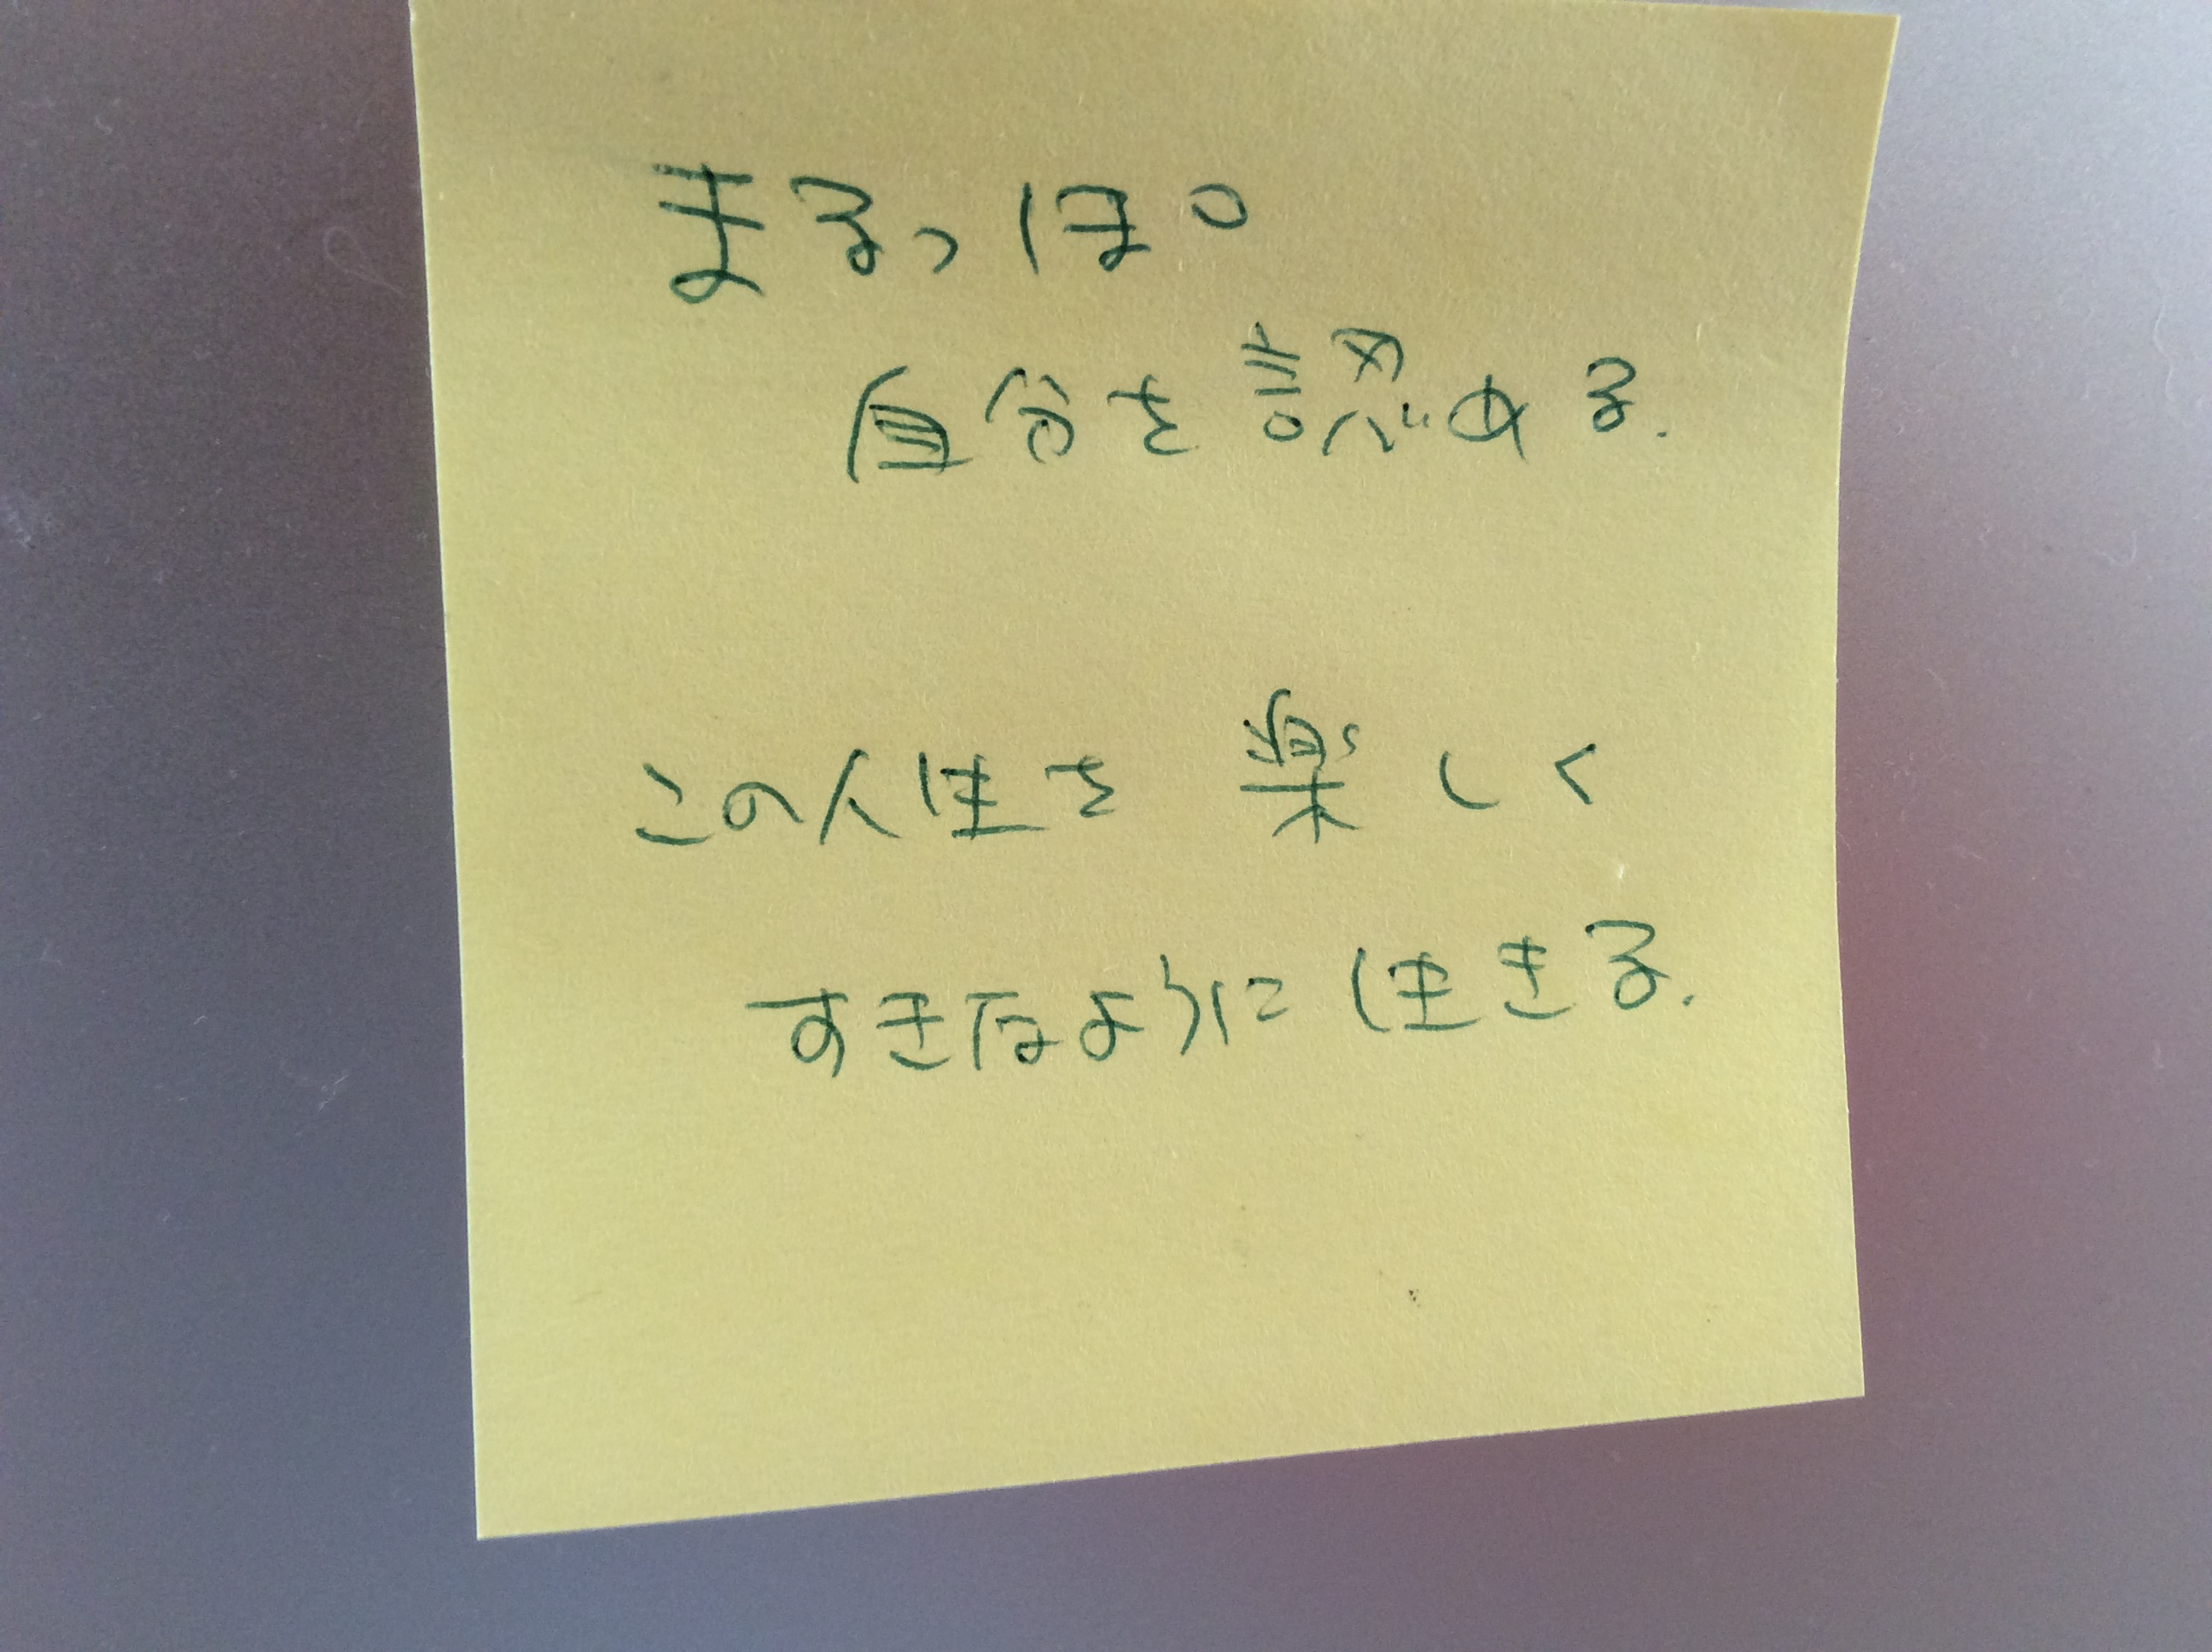 まるっぽ
自分を認める.
この人生を 楽しく
すきなように生きる.